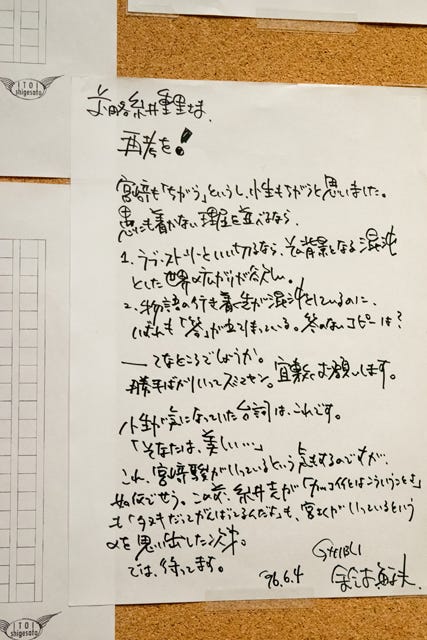 ITOI
shigesato
前略 糸井重里さま、
再考を!
宮崎も「ちがう」というし、小生もちがうと思いました。
愚にも着かない理屈を並べるなら、
1. ラブ・ストーリーといい切るなら、その背景となる混沌
とした世界の広がりが欲しい。
2. 物語の行き着く先が混沌としているのに、
いずれも「答」が出てしまっている。答のないコピーは?
——てなところでしょうか。
勝手ばかりいってスミマセン。宜敷くお願いします。
小生が気になっていた台詞は、これです。
「そなたは、美しい…」
これ、宮崎駿がいっているという気もするのですが、
如何でせう。この前、糸井さんが「カッコイイとはこういうことさ」
も「タヌキだってがんばってるんだよ」も、宮さんがいっているという
のを思い出した次第。
では、待ってます。
'96.6.4
GHIBLI
鈴木敏夫
ITOI
shigesato